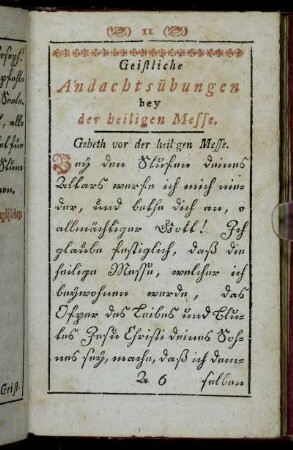 11
Geistliche
Andachtsübungen
bey
der heiligen Messe.
Gebeth vor der heil'gen Messe.
Bey den Stufen deines
Altars werfe ich mich nie-
der, und bethe dich an, o
allmächtiger Gott! Ich
glaube festiglich, daß die
heilige Messe, welcher ich
beywohnen werde, das
Opfer des Leibes und Blu-
tes Jesu Christi deines Soh-
nes sey, mache, daß ich dem-
A 6 selben